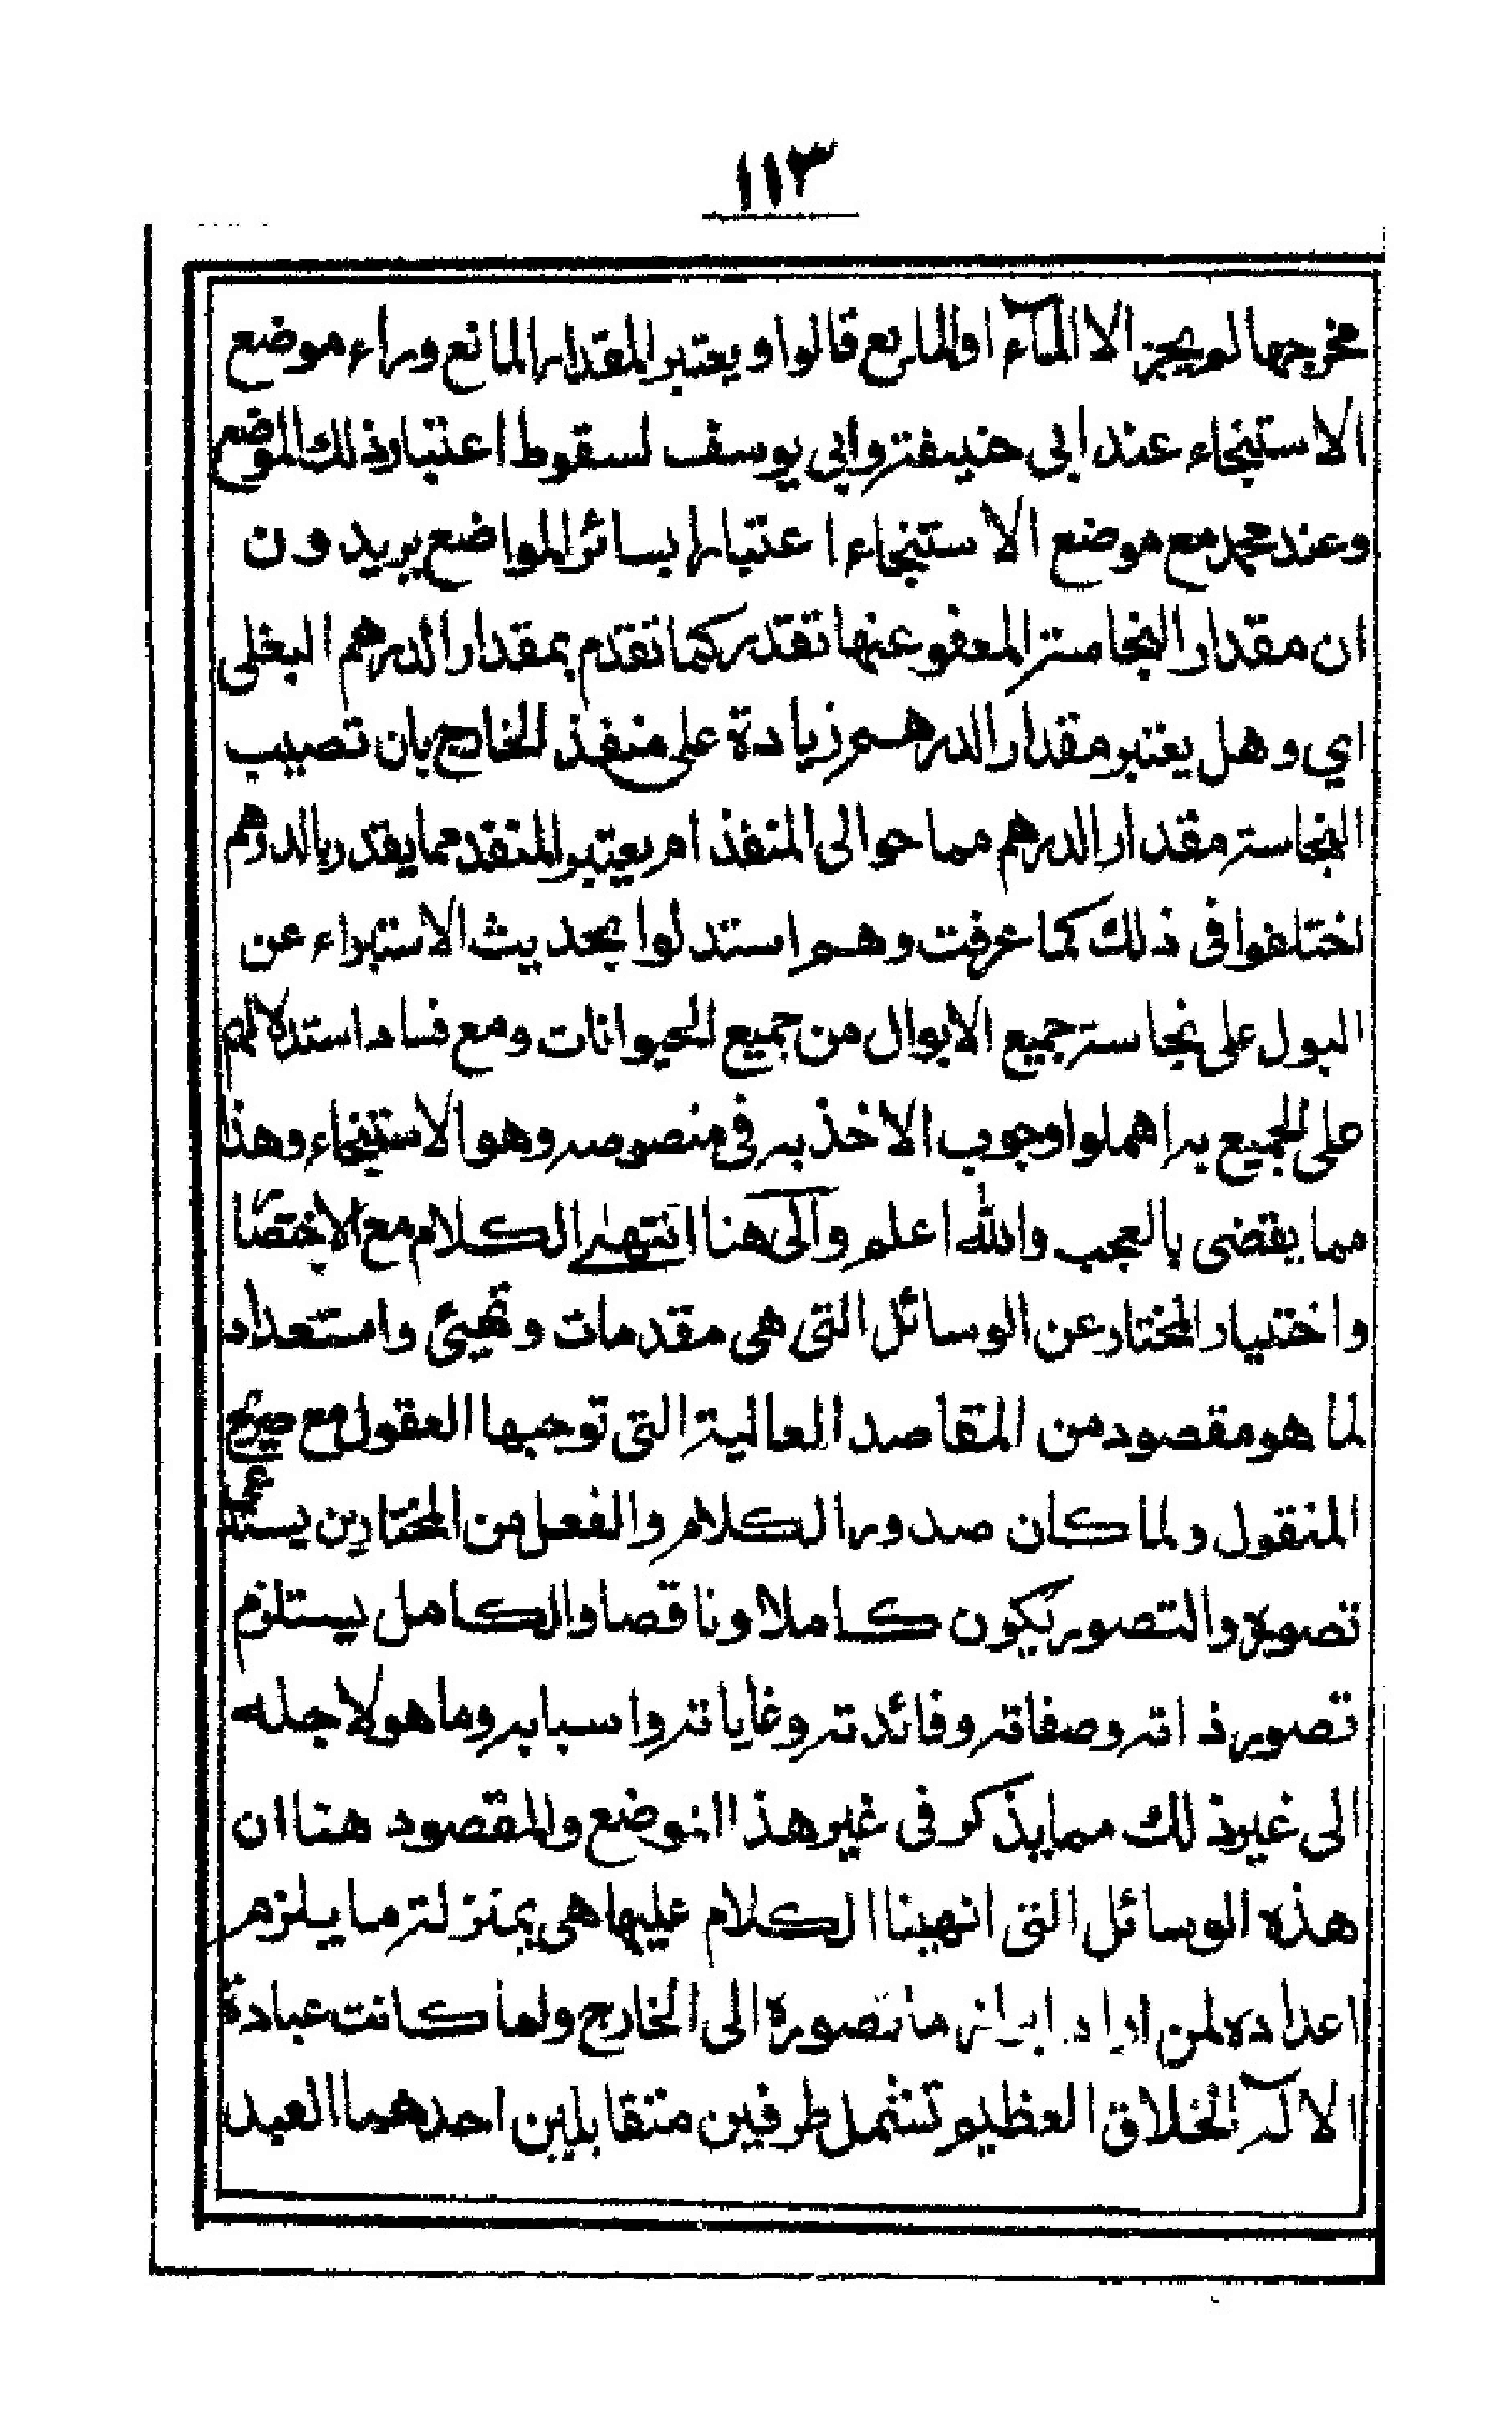 ١١٣
مخرجها لم يجز الا المآء او المايع قالوا ويعتبر المقدار المانع وراء موضع
الاستنجاء عند ابى حنيفة وابي يوسف لسقوط اعتبار ذلك الموضع
وعند محمد مع موضع الاستنجاء اعتبارا بسائر المواضع يريدون
ان مقدار النجاسة المعفو عنها تقدر كما تقدم بمقدار الدرهم البغلى
اي وهل يعتبر مقدار الدرهم زيادة على منفذ الخارج بان تصيب
النجاسة مقدار الدرهم مما حوالى المنفذ ام يعتبر المنفذ مما يقدر بالدرهم
اختلفوا فى ذلك كما عرفت وهم استدلوا بحديث الاستبراء عن
البول على نجاسة جميع الابوال من جميع الحيوانات ومع فساد استدلالهم
على الجميع به اهملوا وجوب الاخذ به فى منصوصه وهو الاستنجاء وهذا
مما يقضى بالعجب والله اعلم وآلى هنا انتهى الكلام مع الاختصا
واختيار المختار عن الوسائل التى هى مقدمات وتهيئ واستعداد
لما هو مقصود من المقاصد العالية التى توجبها العقول مع صريح
المنقول ولما كان صدور الكلام والفعل من المختارين يستدعى
تصوره والتصور يكون كاملا وناقصا والكامل يستلزم
تصور ذاته وصفاته وفائدته وغاياته واسبابه وما هو لاجله
الى غير ذلك مما يذكر فى غير هذا الموضع والمقصود هنا ان
هذه الوسائل التى انهينا الكلام عليها هى بمنزلة ما يلزم
اعداده لمن اراد ابراز ما تصوره الى الخارج ولما كانت عبادة
الآله الخلاق العظيم تشمل طرفين متقابلين احدهما العبد